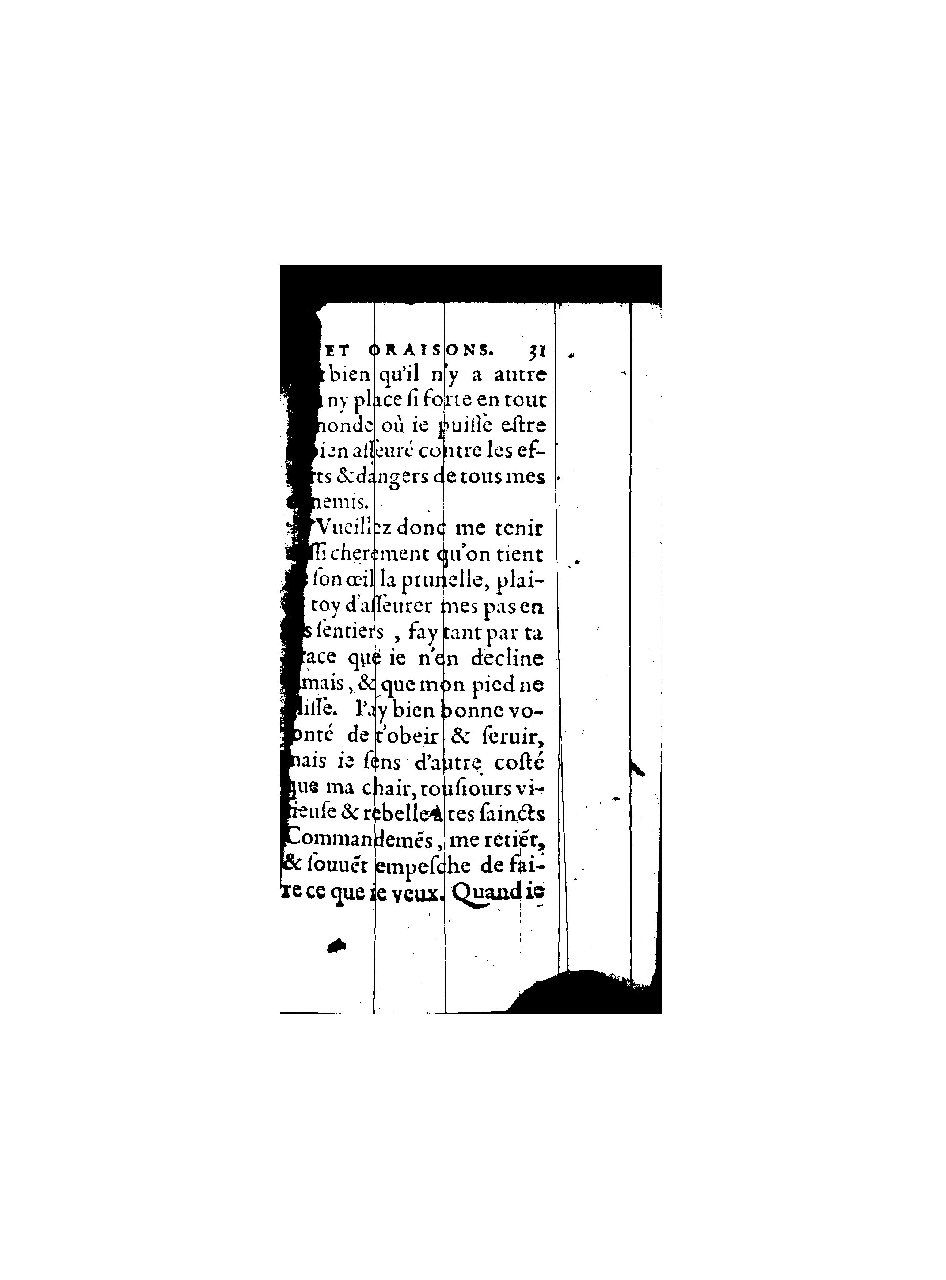 ET ORAISONS. 31
bien qu'il n'y a autre
ny place ſi forte en tout
monde où ie puiſſe eſtre
bien aſſeuré contre les ef-
& dangers de tous mes
Vueillez donc me tenir
cherement qu'on tient
ſon œil la prunelle, plai-
toy d'aſſeurer mes pas en
ſentiers, fay tant par ta
que ie n'en decline
& que mon pied ne
I'ay bien bonne vo-
lonté de t'obeir & ſeruir,
mais ie ſens d'autre coſté
que ma chair, touſiours vi-
tieuſe & rebelle à tes ſaincts
Commandemēs, me retiēt,
& ſouuēt empeſche de fai-
re ce que ie veux. Quand ie